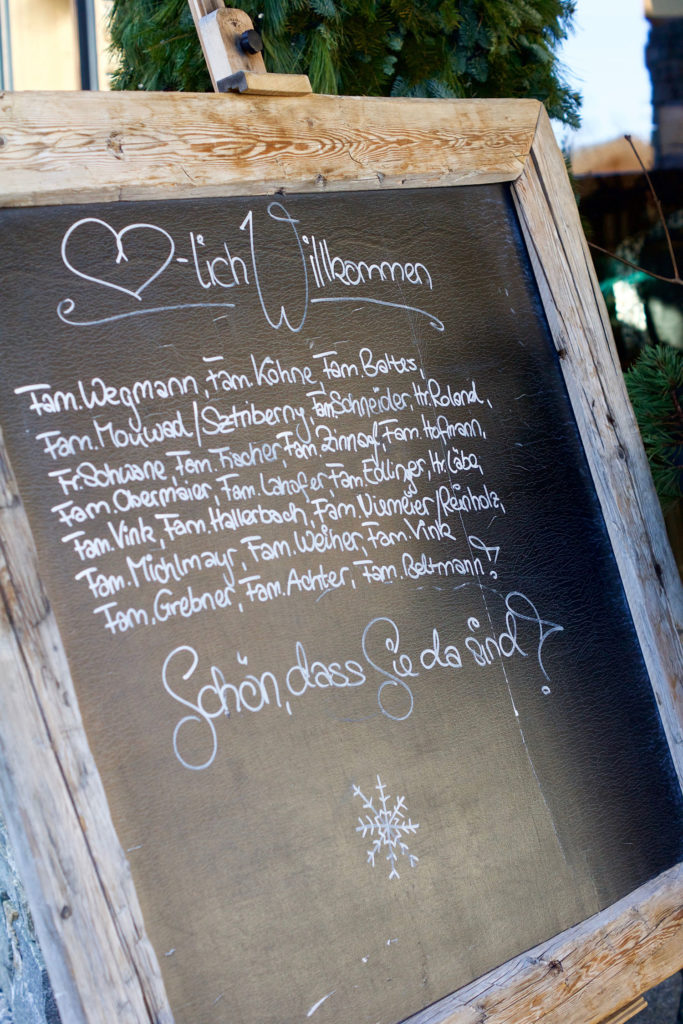 -lich Willkommen
Fam. Wegmann, Fam. Köhne, Fam. Baltes,
Fam. Mouwad / Sztriberny, Fam. Schneider, Hr. Roland,
Fr. Schwane, Fam. Fischer, Fam. Zinnauf, Fam. Hofmann,
Fam. Obermaier, Fam. Lahofer, Fam. Edlinger, Hr. Labe,
Fam. Vink, Fam. Hallerbach, Fam. Viermeier / Reinholz,
Fam. Michlmayr, Fam. Weiher, Fam. Vink
Fam. Grebner, Fam. Achter, Fam. Beltmann!
Schön, dass Sie da sind!